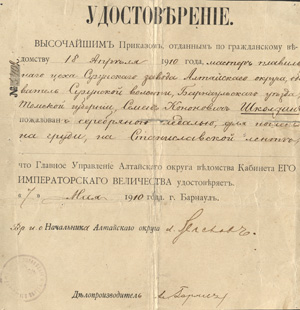 УДОСТОВѢРЕНІЕ.
ВЫСОЧАЙШИМЪ Приказомъ, отданнымъ по гражданскому вѣ-
домству 18 Апрѣля 1910 года, мастеръ плавиль-
наго цеха Сузунскаго завода Алтайскаго округа,
Сузунской волости, Барнаульскаго уѣзда,
Томской губерніи, Кононовичъ
пожалован серебряною медалью, для ношенія
на груди, на Станиславской лентѣ,
что Главное Управленіе Алтайскаго округа вѣдомства Кабинета ЕГО
ИМПЕРАТОРСКАГО ВЕЛИЧЕСТВА удостовѣряетъ.
"7" Мая 1910 года. г. Барнаулъ.
Вр. и. о. Начальника Алтайскаго округа
Дѣлопроизводитель